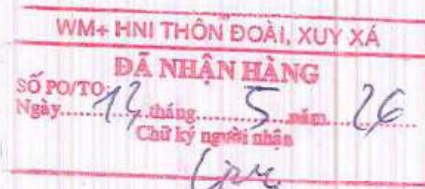 WM+ HNI THÔN ĐOÀI, XUY XÁ
ĐÃ NHẬN HÀNG
SỐ PO/TO:
Ngày.....12.....tháng.....5.....năm.....26
Chữ ký người nhận